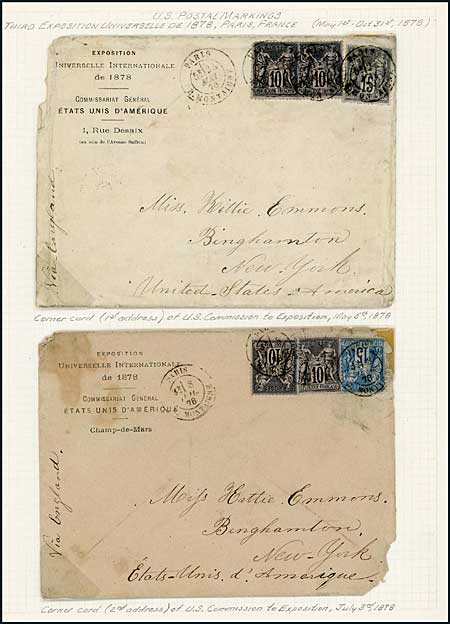 U.S. POSTAL MARKINGS
THIRD EXPOSITION UNIVERSELLE DE 1878, PARIS, FRANCE (May 1st - Oct 31st, 1878)
EXPOSITION
UNIVERSELLE INTERNATIONALE
de 1878
COMMISSARIAT GÉNÉRAL
ÉTATS UNIS D'AMÉRIQUE
1, Rue Desaix
(au coin de l'Avenue Suffren)
PARIS
MONTAIGNE
10
10
15
Via England
Miss. Hittie. Emmons.
Binghamton
New-York.
United-States-America
Corner card (1st address) of U.S. Commission to Exposition, May 6th, 1878
EXPOSITION
UNIVERSELLE INTERNATIONALE
de 1878
COMMISSARIAT GÉNÉRAL
ÉTATS UNIS D'AMÉRIQUE
Champ-de-Mars
PARIS
8
78
MONTAIGNE
10
10
15
Via England.
Miss Hattie. Emmons.
Binghamton.
New-York.
États-Unis. d'Amérique.
Corner card (2nd address) of U.S. Commission to Exposition, July 3rd, 1878